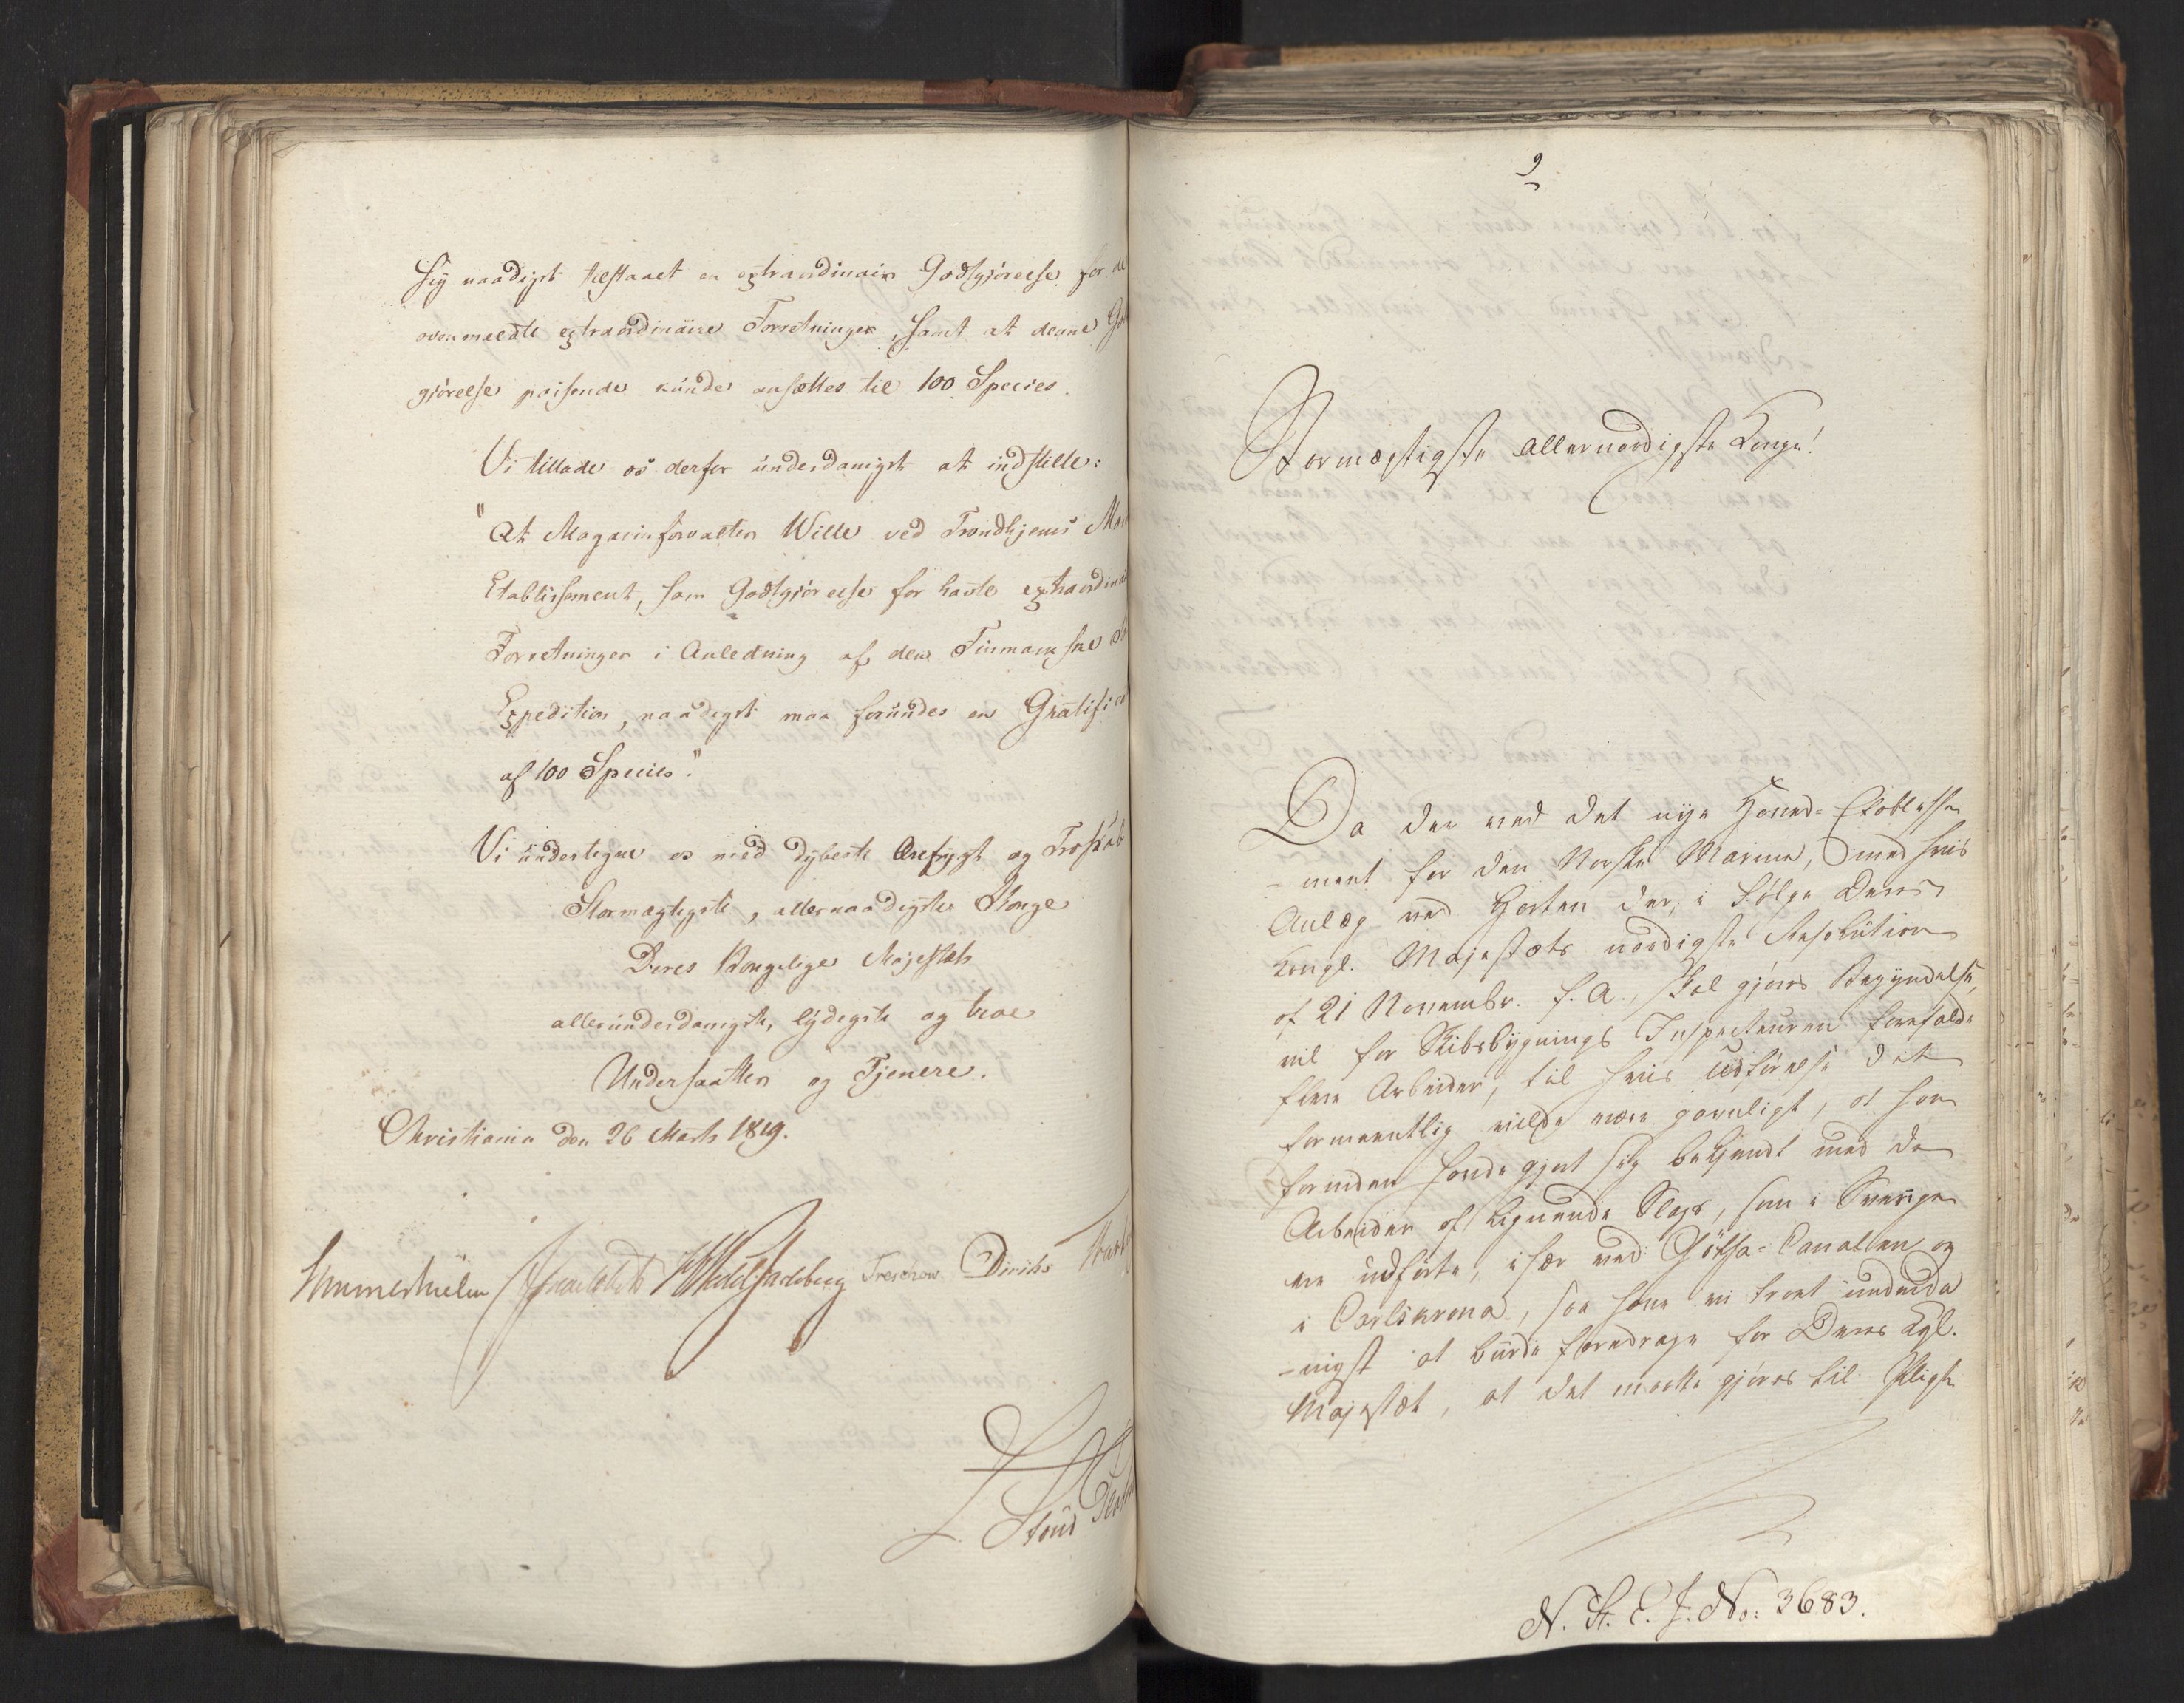 sig naadigst tilstaaet en extraordinair Godtgjörelse for de
ovenmeldte extraordinaire Forretninger, samt at denne God
gjörelse passende kunde ansættes til 100 Species.
Vi tillade os derfor underdanigst at indstille:
"At Magazinforvalter Wille ved Trondhjems Mar
Etablissement, som Godtgjörelse for havte extraordinai
Forretninger i Anledning af den Finmarkske
Expedition, naadigst maa forundes en Gratific
af 100 Species".
Vi undertegne os med dybeste Ærefrygt og Troskab
Stormægtigste, allernaadigste Konge
Deres Kongelige Majestæts
allerunderdanigste, lydigste og troe
Undersaatter og Tjenere.
Christiania den 26 Marts 1819.
Sommerhielm Wedel Jarlsberg Treschow Diriks
9
Stormægtigste Allernaadigste Konge!
Da der ved det nye Hoved-Etablisse
-ment for den Norske Marine, med hvis
Anlæg ved Horten der, i Følge Deres
Kongl. Majestæts naadigste Resolution
af 21 Novembr. f. A., skal gjöres Begyndelse,
vil for Skibsbygnings Inspecteuren forefalde
flere Arbeider, til hvis Udförelse det
formeentlig vilde være gavnligt, at han
forinden havde gjort sig bekjendt med de
Arbeider af lignende Slags, som i Sverrige
ere udförte, især ved Götha-Canallen og
i Carlskrona, saa have vi troet underda
-nigst at burde foredrage for Deres Kgl.
Majestæt, at det maatte gjöres til Pligt
N. St. E. J. No: 3683.